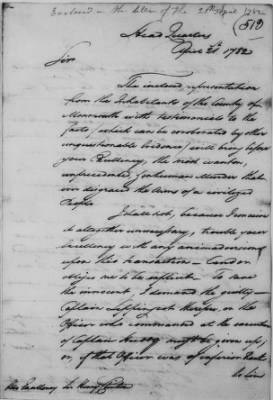 Enclosed in the letter of the 21st April 1782
(519)
Head Quarters
April 21st 1782
Sir
The inclosed representation
from the Inhabitants of the County of
Monmouth with testimonials to the
facts (which can be corroborated by other
unquestionable Evidence) will bring before
your Excellency, the most wanton,
unprecedented & inhuman Murder that
ever disgraced the Arms of a civilized
People
I shall not, because I conceive
it altogether unnecessary, trouble your
Excellency with any animadversions
upon this transaction — Candor
obliges me to be explicit — To save
the innocent, I demand the guilty —
Captain Lippingcot therefore, or the
Officer who commanded at the execution
of Captain Huddy must be given up;
or, if that Officer was of inferior Rank
to him
His Excellency Sir Henry Clinton